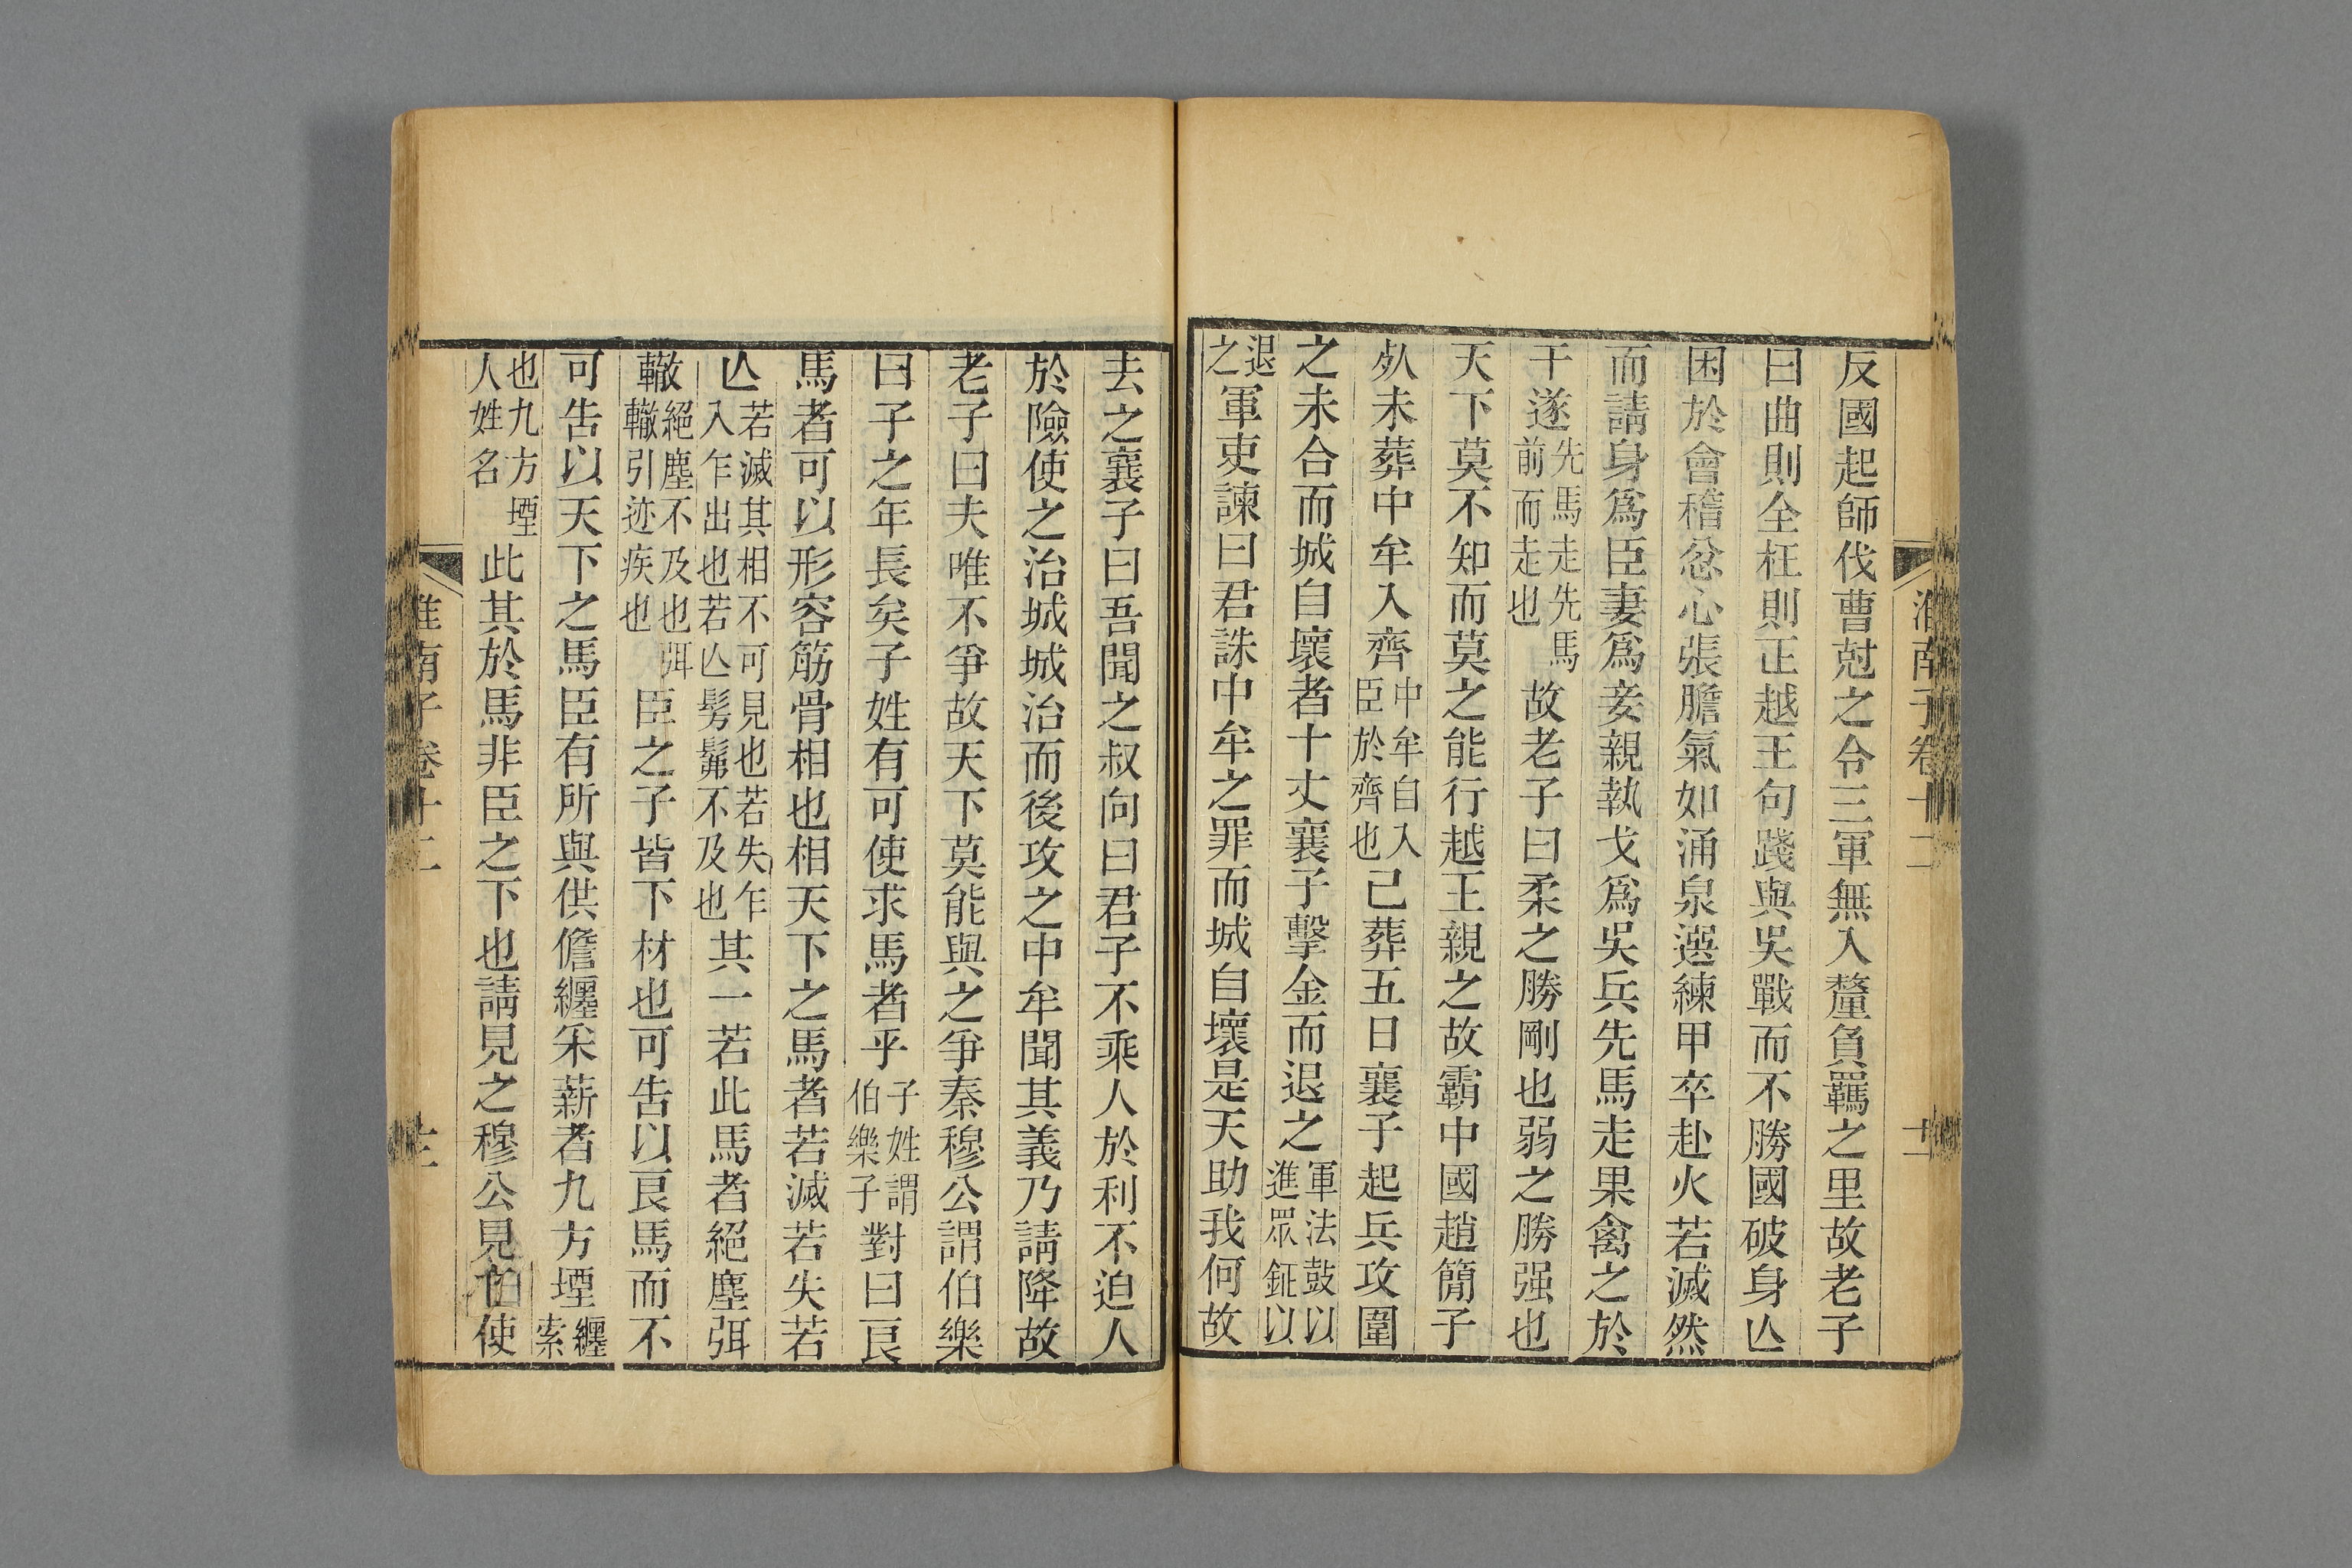 淮南子卷十二
十二
反國起師伐曹尅之令三軍無入釐負羈之里故老子
曰曲則全枉則正越王句踐與吳戰而不勝國破身亾
困於會稽忿心張膽氣如涌泉選練甲卒赴火若滅然
而請身爲臣妻爲妾親執戈爲吳兵先馬走果禽之於
干遂先馬走先馬前而走也故老子曰柔之勝剛也弱之勝强也
天下莫不知而莫之能行越王親之故霸中國趙簡子
㱙未葬中牟入齊中牟自入臣於齊也己葬五日襄子起兵攻圍
之未合而城自壞者十丈襄子擊金而退之軍法鼓以進眾鉦以
退之軍吏諫曰君誅中牟之罪而城自壞是天助我何故
去之襄子曰吾聞之叔向曰君子不乘人於利不迫人
於險使之治城城治而後攻之中牟聞其義乃請降故
老子曰夫唯不爭故天下莫能與之爭秦穆公謂伯樂
曰子之年長矣子姓有可使求馬者乎子姓謂伯樂子對曰良
馬者可以形容筋骨相也相天下之馬者若滅若失若
亾若滅其相不可見也若失乍入乍出也若亾髣髴不及也其一若此馬者絕塵弭
轍絕塵不及也弭轍引迹疾也臣之子皆下材也可告以良馬而不
可告以天下之馬臣有所與供儋纆采薪者九方堙纆索
也九方堙人姓名此其於馬非臣之下也請見之穆公見伯使
淮南子卷十二